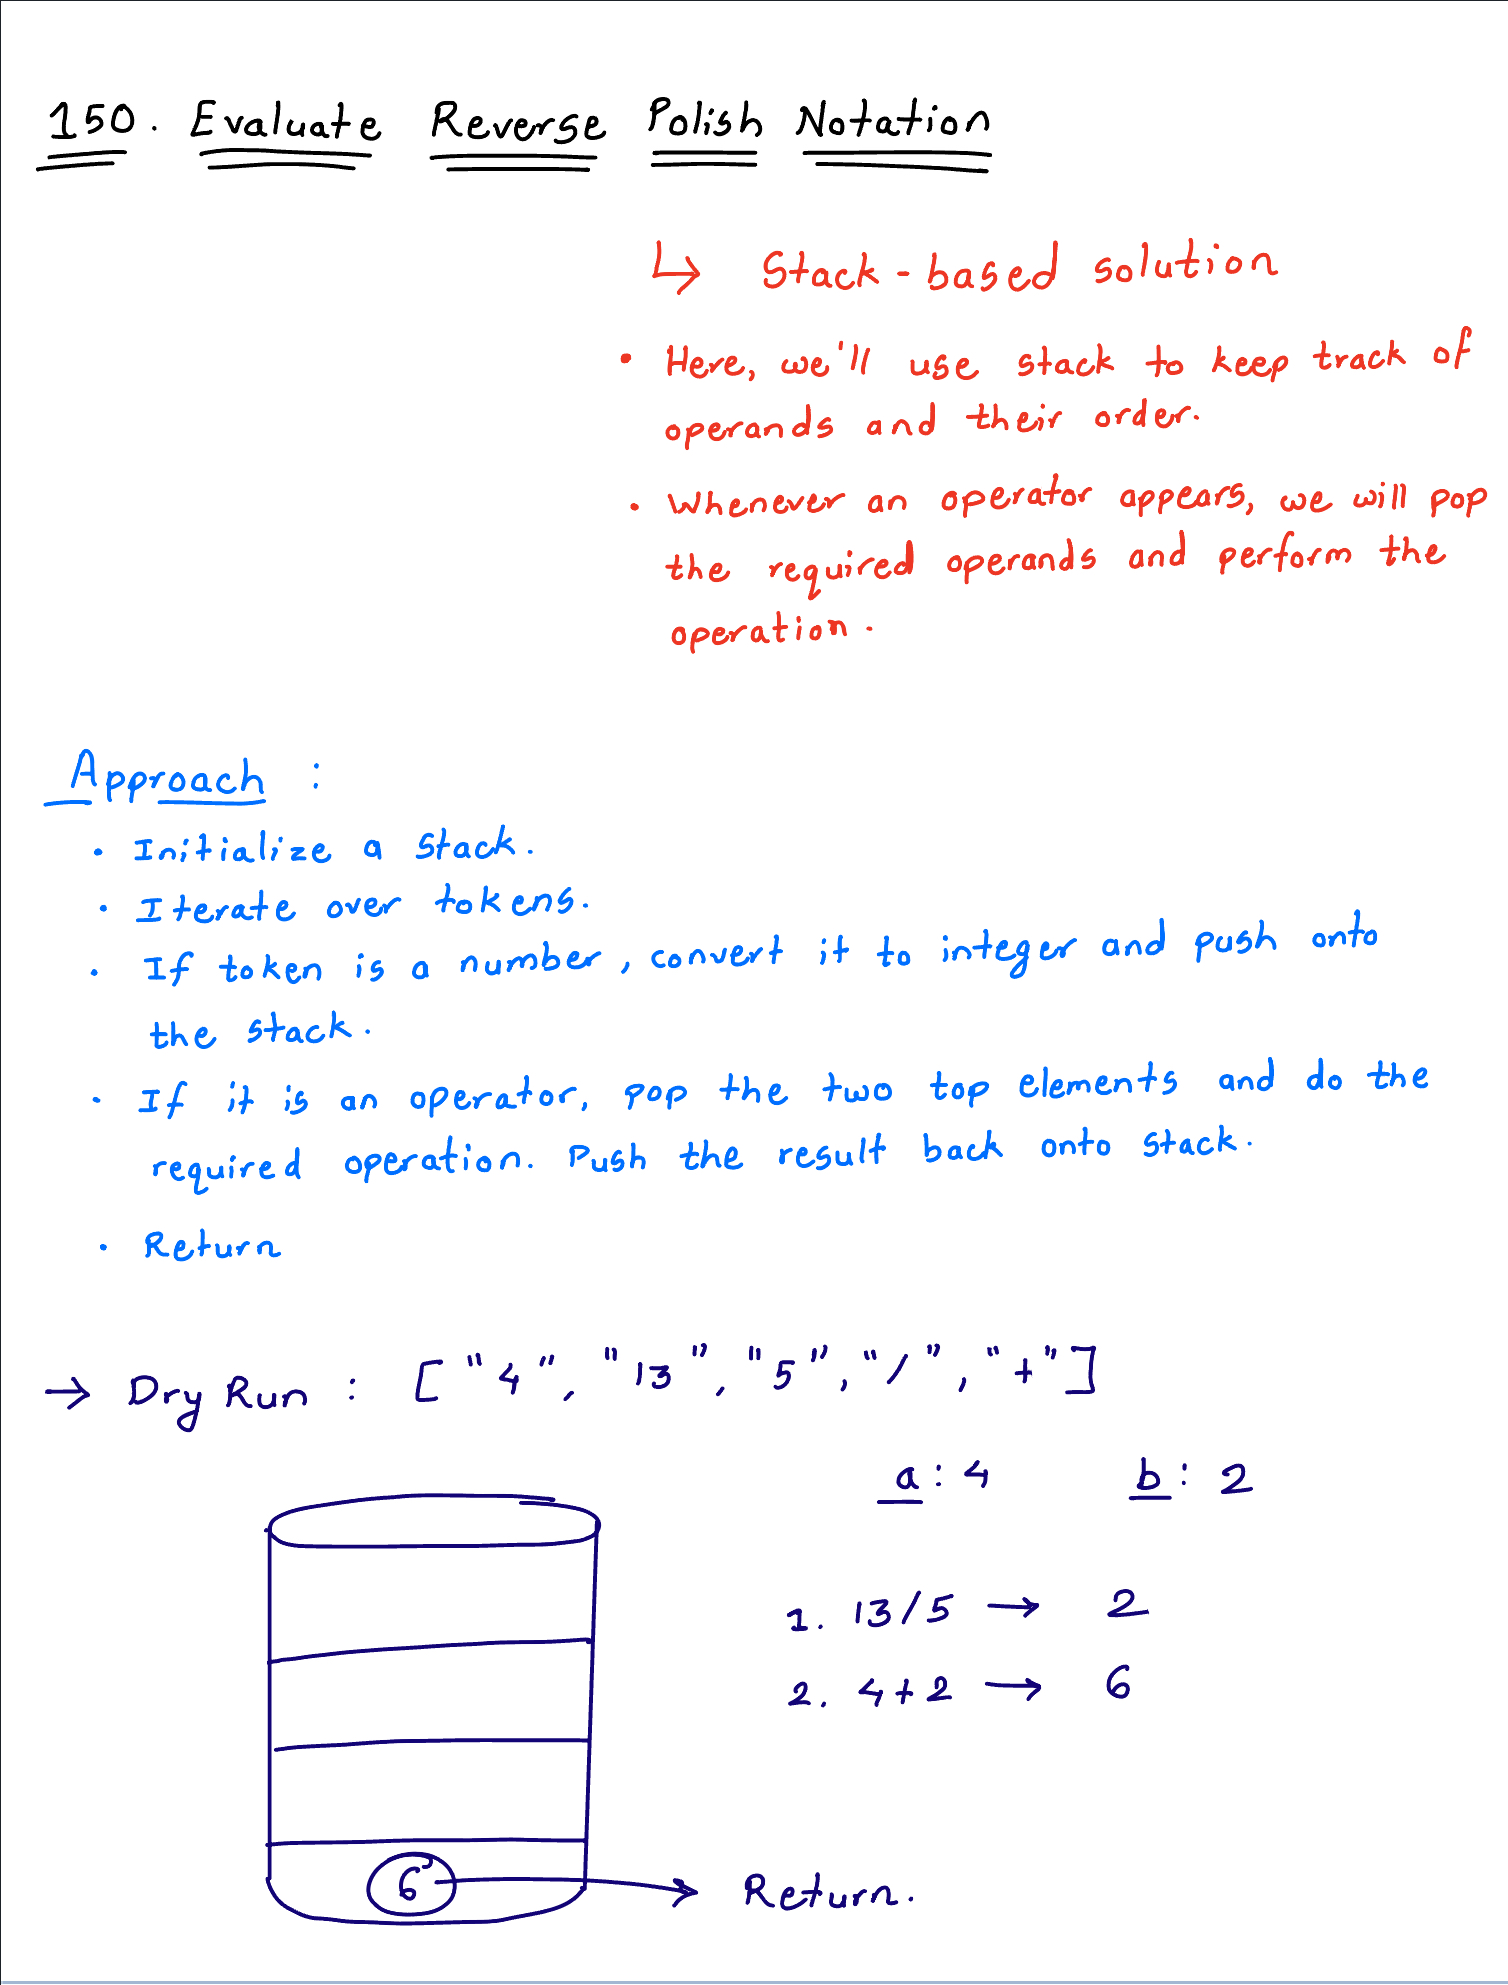 150. Evaluate Reverse Polish Notation
↳ Stack-based solution
• Here, we'll use stack to keep track of
operands and their order.
• Whenever an operator appears, we will pop
the required operands and perform the
operation.
Approach :
• Initialize a stack.
• Iterate over tokens.
• If token is a number, convert it to integer and push onto
the stack.
• If it is an operator, pop the two top elements and do the
required operation. Push the result back onto stack.
• Return
→ Dry Run : ["4", "13", "5", "/", "+"]
a : 4 b : 2
1. 13/5 → 2
2. 4+2 → 6
6 → Return.